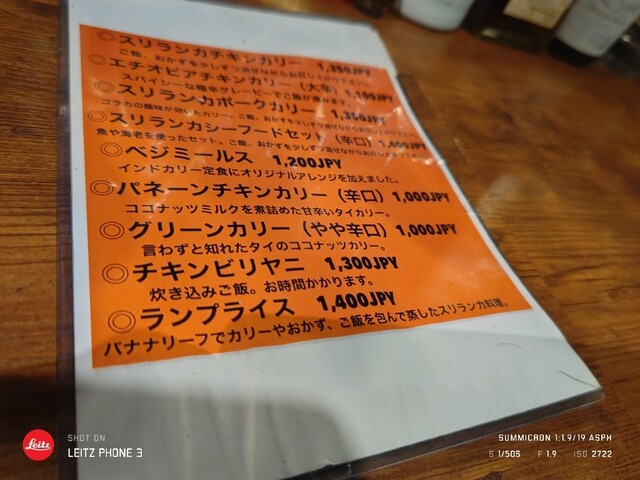 ◎スリランカチキンカリー 1,350JPY
ご飯、おかずを少しずつ混ぜながらお召し上がり下さい。
◎エチオピアチキンカリー（大辛）1,100JPY
スパイシーな極辛グレービーでご飯が進みます。
◎スリランカポークカリー 1,350JPY
ゴラカの酸味が効いたカリー。ご飯、おかずを少しずつ混ぜながらお召し上がり
◎スリランカシーフードセット（辛口）
魚や海老を使ったセット。ご飯、おかずを少しずつ混ぜながらお召し上がり
◎ベジミールス 1,200JPY
インドカリー定食にオリジナルアレンジを加えました。
◎パネーンチキンカリー（辛口）1,000JPY
ココナッツミルクを煮詰めた甘辛いタイカリー。
◎グリーンカリー（やや辛口）1,000JPY
言わずと知れたタイのココナッツカリー。
◎チキンビリヤニ 1,300JPY
炊き込みご飯。お時間かかります。
◎ランプライス 1,400JPY
バナナリーフでカリーやおかず、ご飯を包んで蒸したスリランカ料理。
Leitz
SHOT ON
LEITZ PHONE 3
SUMMICRON 1:1.9/19 ASPH
S 1/50S F 1.9 ISO 2722